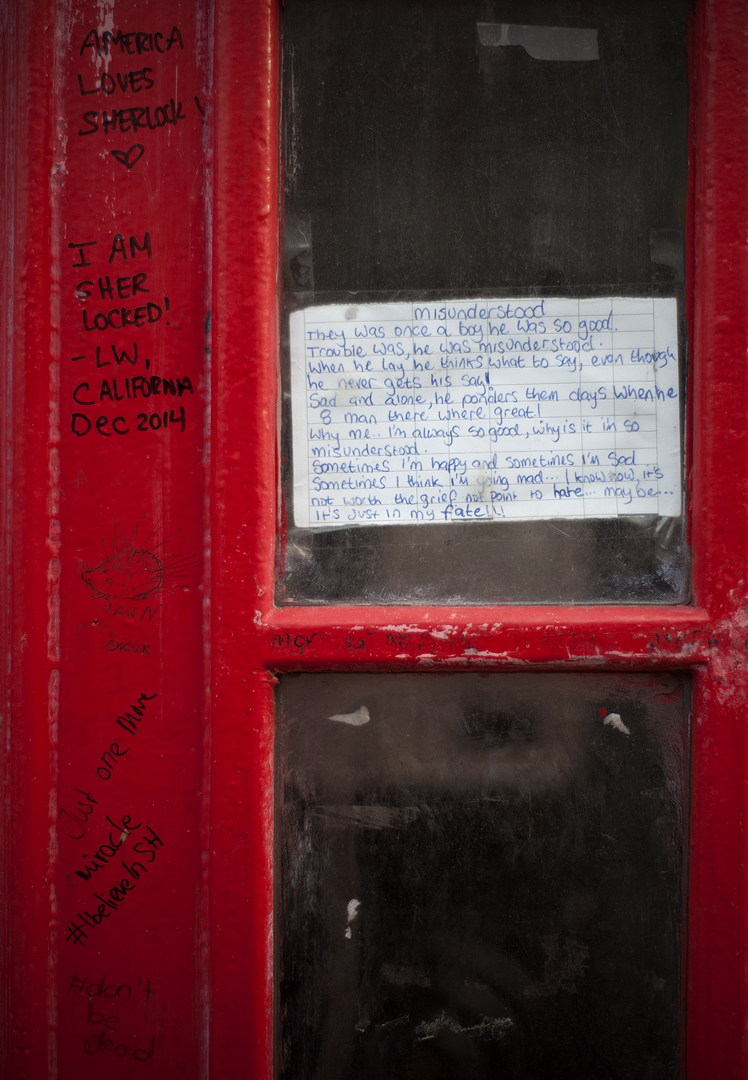 AMERICA
LOVES
SHERLOCK!
I AM
SHER
LOCKED!
- LW,
CALIFORNIA
Dec 2014
Just one More
miracle
#Ibelieve In SH
#don't
be
dead
misunderstood
They was once a boy he was so good.
Trouble was, he was misunderstood.
when he lay he thinks what to say, even though
he never gets his say!
Sad and alone, he ponders them days when he
8 man there where great!
why me.. I'm always so good, why is it im so
misunderstood.
Sometimes I'm happy and sometimes I'm sad
Sometimes I think I'm going mad... I know now, it's
not worth the grief not point to hate... maybe...
It's Just in my fate!!!